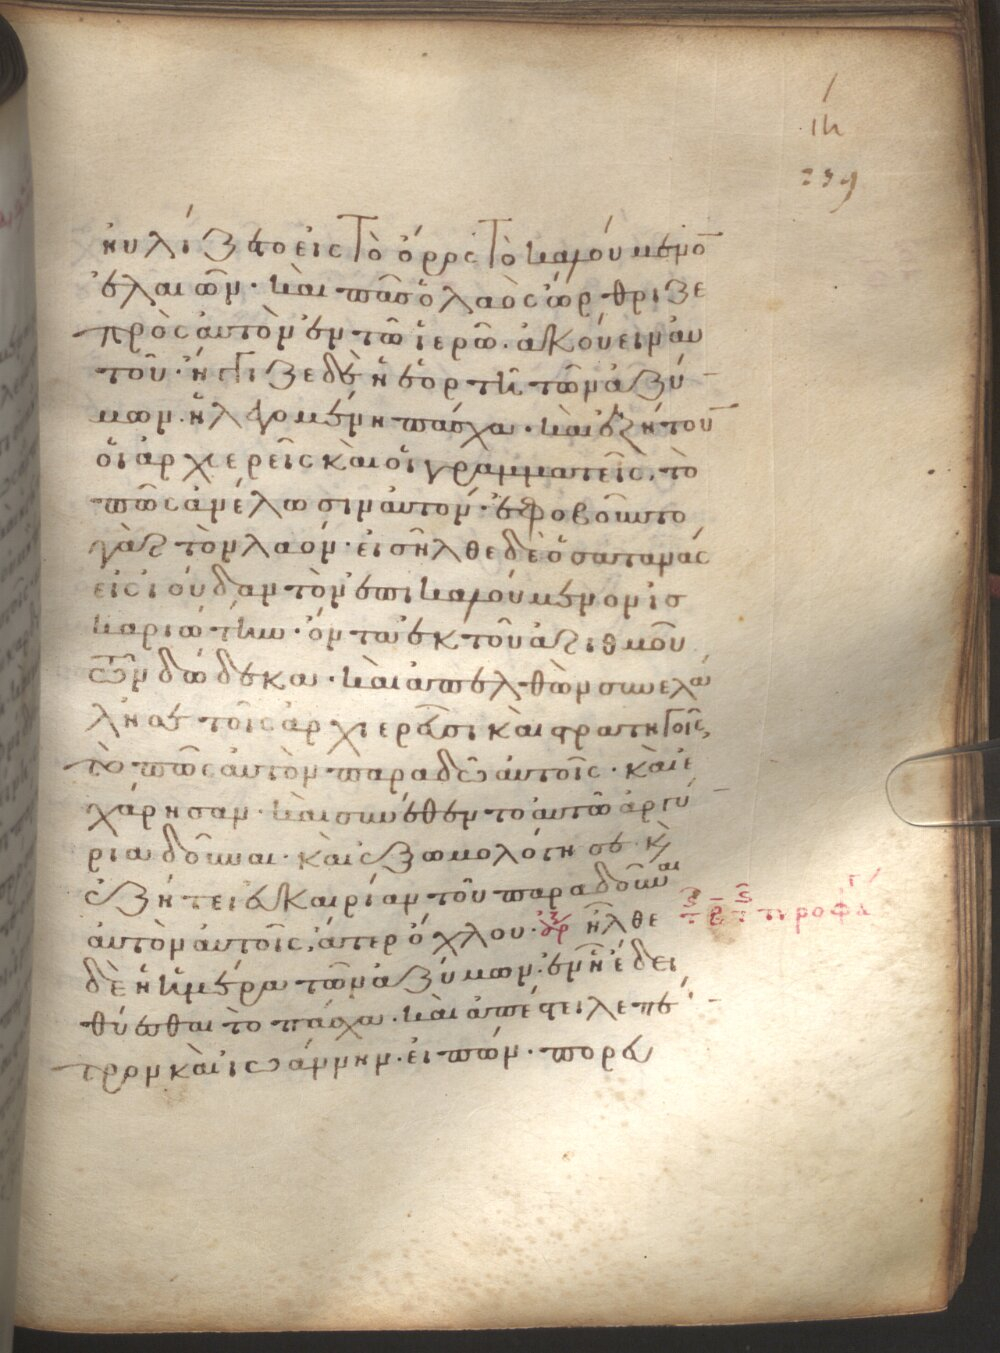 ιη
239
ηυλίζετο εἰς τὸ ὄρος τὸ καλούμενο
ἐλαιῶν· καὶ πᾶς ὁ λαὸς ὤρθριζε
πρὸς αὐτὸν ἐν τῶ ἱερῶ. ἀκούειν αὐ
τοῦ· ἤγγιζε δὲ ἡ ἑορτὴ τῶν ἀζύ
μων. ἡ λεγομένη πάσχα. καὶ ἐζήτου
οἱ ἀρχιερεῖς καὶ οἱ γραμματεῖς, τὸ
πῶς ἀνέλωσιν αὐτόν· ἐφοβοῦντο
γὰρ τὸν λαόν· εἰσῆλθε δὲ ὁ σατανάς
εἰς ἰούδαν τὸν ἐπικαλούμενον ἰσ
καριώτην· ὄντα ἐκ τοῦ ἀριθμοῦ
τῶν δώδεκα. καὶ ἀπελθὼν συνελά
λησε τοῖς ἀρχιερεῦσι καὶ στρατηγοῖς,
τὸ πῶς αὐτὸν παραδῶ αὐτοῖς. καὶ ἐ
χάρησαν. καὶ συνέθεντο αὐτῶ ἀργύ
ρια δοῦναι. καὶ ἐξωμολόγησε. κ
ἐζήτει εὐκαιρίαν τοῦ παραδοῦναι
αὐτὸν αὐτοῖς, ἄτερ ὄχλου. ἦλθε
δὲ ἡ ἡμέρα τῶν ἀζύμων. ἐν ἧ ἔδει
θύεσθαι τὸ πάσχα. καὶ ἀπέστειλε πέ
τρον καὶ ἰωάννην. εἰπών. πορευ